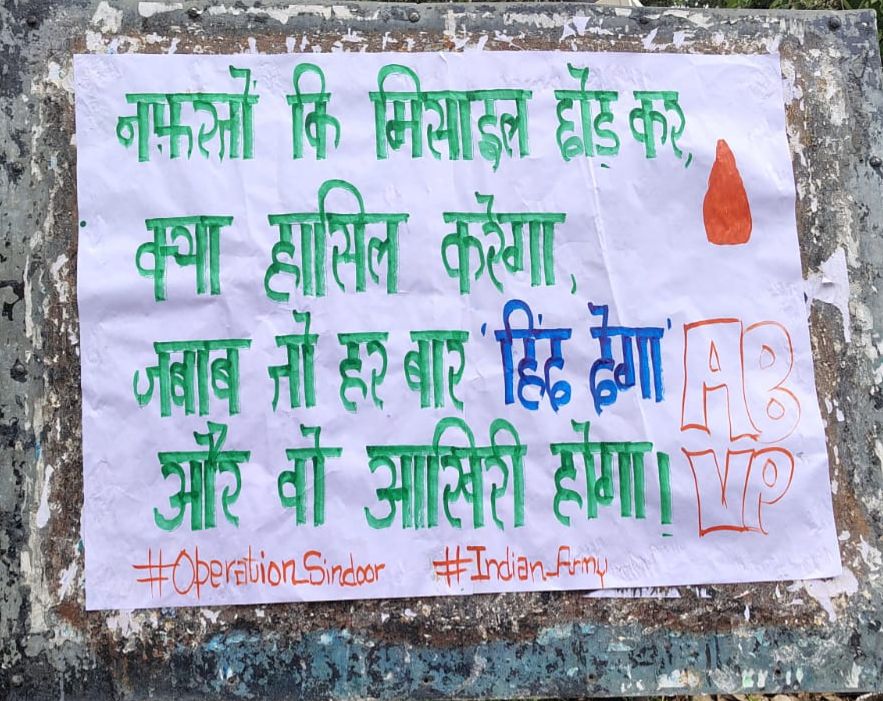 नफ़रतों कि मिसाइल छोड़ कर,
क्या हासिल करेगा,
जबाब तो हर बार 'हिंद देगा'
और वो आखिरी होगा।
AB
VP
#Operation_Sindoor #Indian_Army